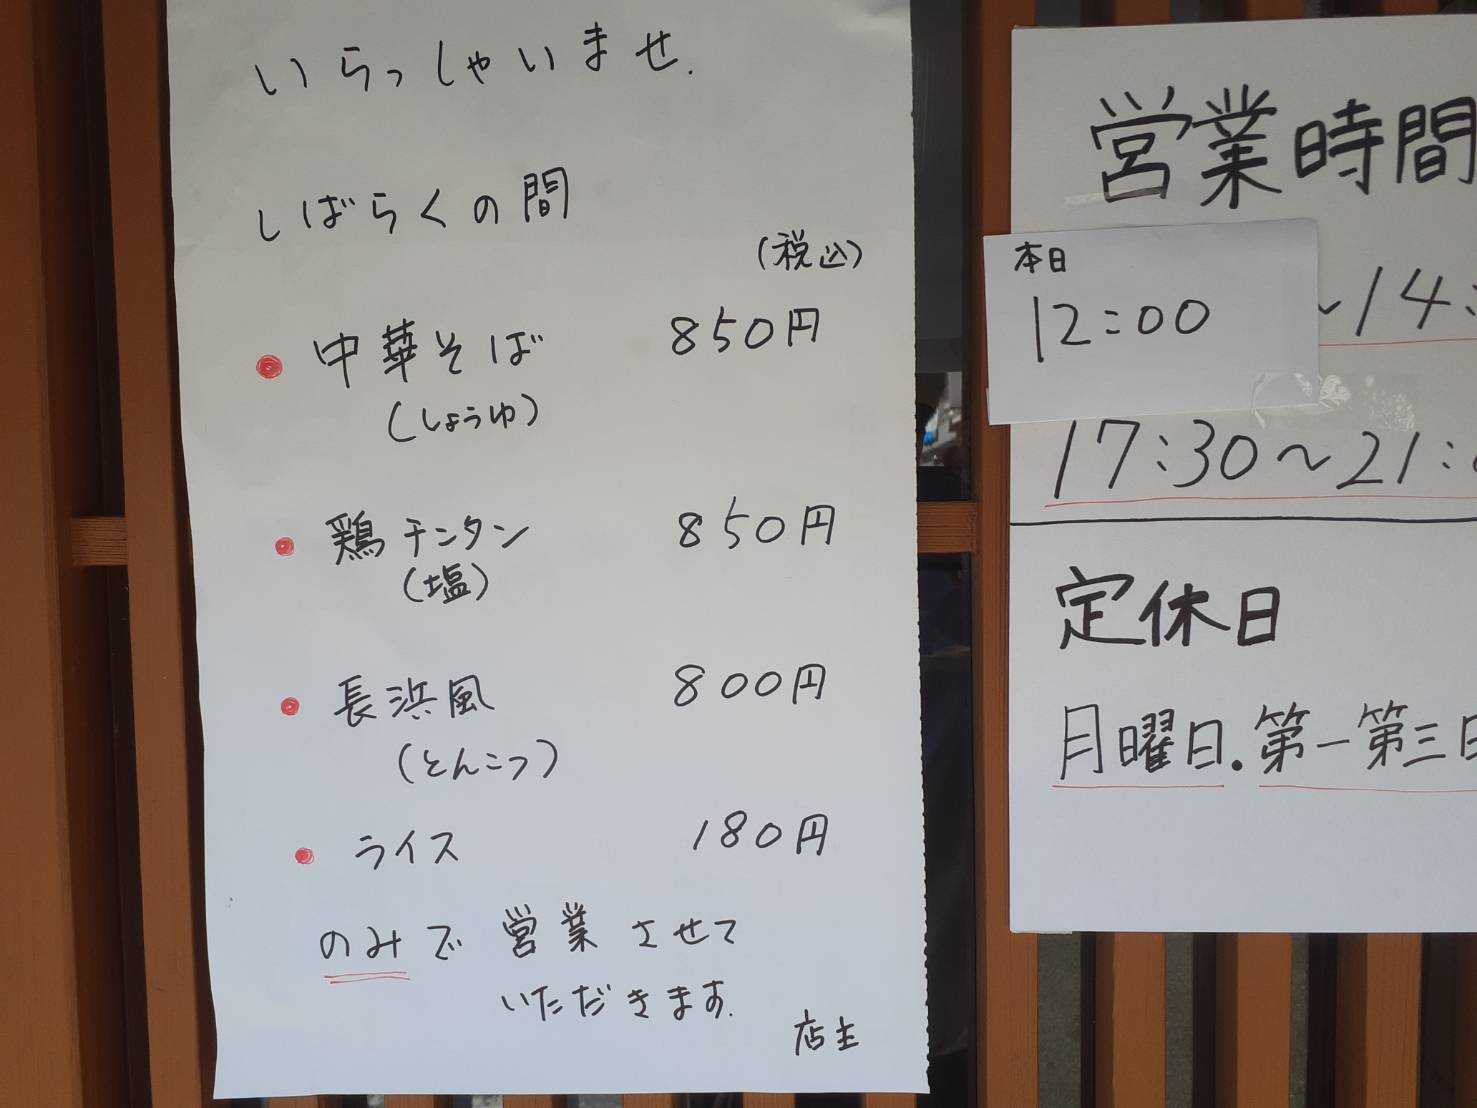 いらっしゃいませ.
しばらくの間
(税込)
中華そば 850円
(しょうゆ)
鶏チンタン 850円
(塩)
長浜風 800円
(とんこつ)
ライス 180円
のみで営業させて
いただきます.
店主
営業時間
本日
12:00 ～14:
17:30～21:
定休日
月曜日.第一第三日